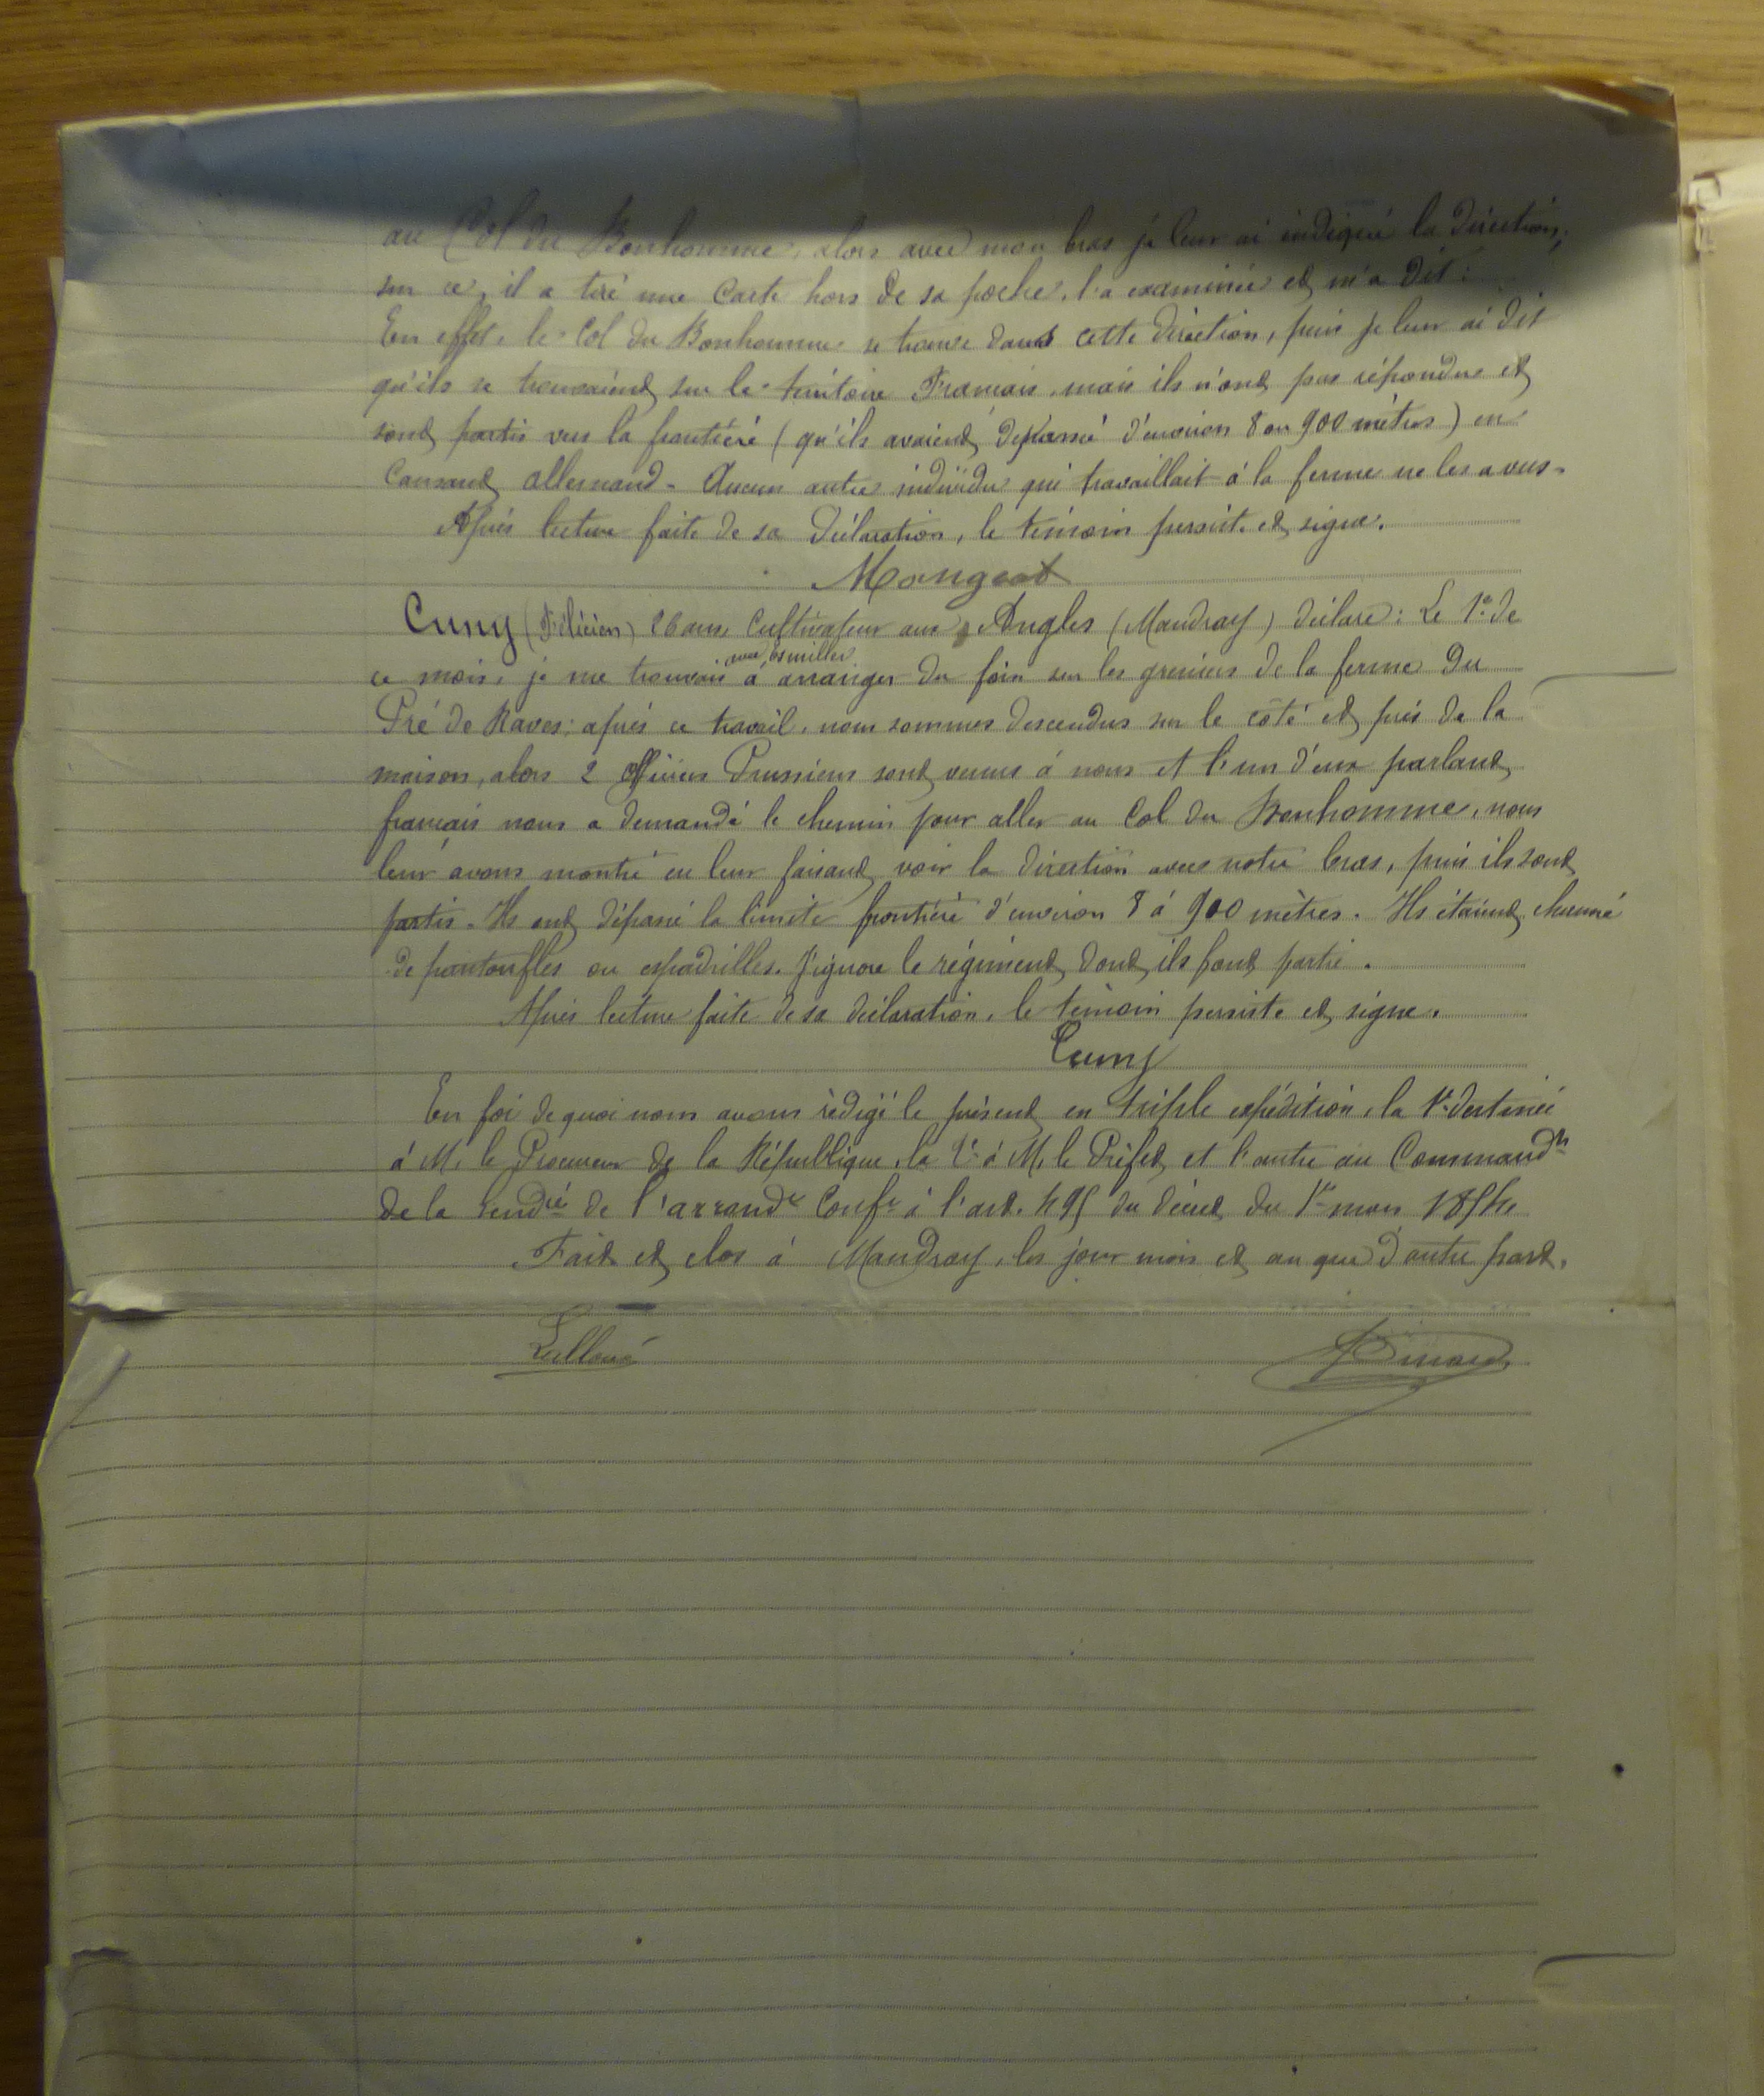 au Col du Bonhomme, alors avec mon bras je leur ai indiqué la direction;
sur ce, il a tiré une Carte hors de sa poche, l'a examinée et m'a dit :
En effet, le Col du Bonhomme se trouve dans cette direction, puis je leur ai dit
qu'ils se trouvaient sur le territoire Français, mais ils n'ont pas répondu et
sont partis vers la frontière (qu'ils avaient dépassé d'environ 8 ou 900 mètres) en
causant allemand. Aucun autre individu qui travaillait à la ferme ne les a vus.
Après lecture faite de sa déclaration, le témoin persiste et signe.
Mangeat
Cuny (Félicien) 26 ans, Cultivateur aux Angles (Mandray) déclare : Le 1er de
ce mois, je me trouvais avec à arranger du foin sur les greniers de la ferme du
Pré de Raves; après ce travail, nous sommes descendus sur le côté et près de la
maison, alors 2 Officiers Prussiens sont venus à nous et l'un d'eux parlant
français nous a demandé le chemin pour aller au Col du Bonhomme, nous
leur avons montré en leur faisant voir la direction avec notre bras, puis ils sont
partis. Ils ont dépassé la limite frontière d'environ 8 à 900 mètres. Ils étaient chaussé
de pantoufles ou espadrilles. J'ignore le régiment dont ils font partie.
Après lecture faite de sa déclaration, le témoin persiste et signe.
Cuny
En foi de quoi nous avons rédigé le présent en triple expédition, la 1e destinée
à M. le Procureur de la République, la 2e à M. le Préfet et l'autre au Commandt
de la Gendrie de l'arrondt Conft à l'art. 495 du décret du 1er mars 1854.
Fait et clos à Mandray, les jour mois et an que d'autre part.